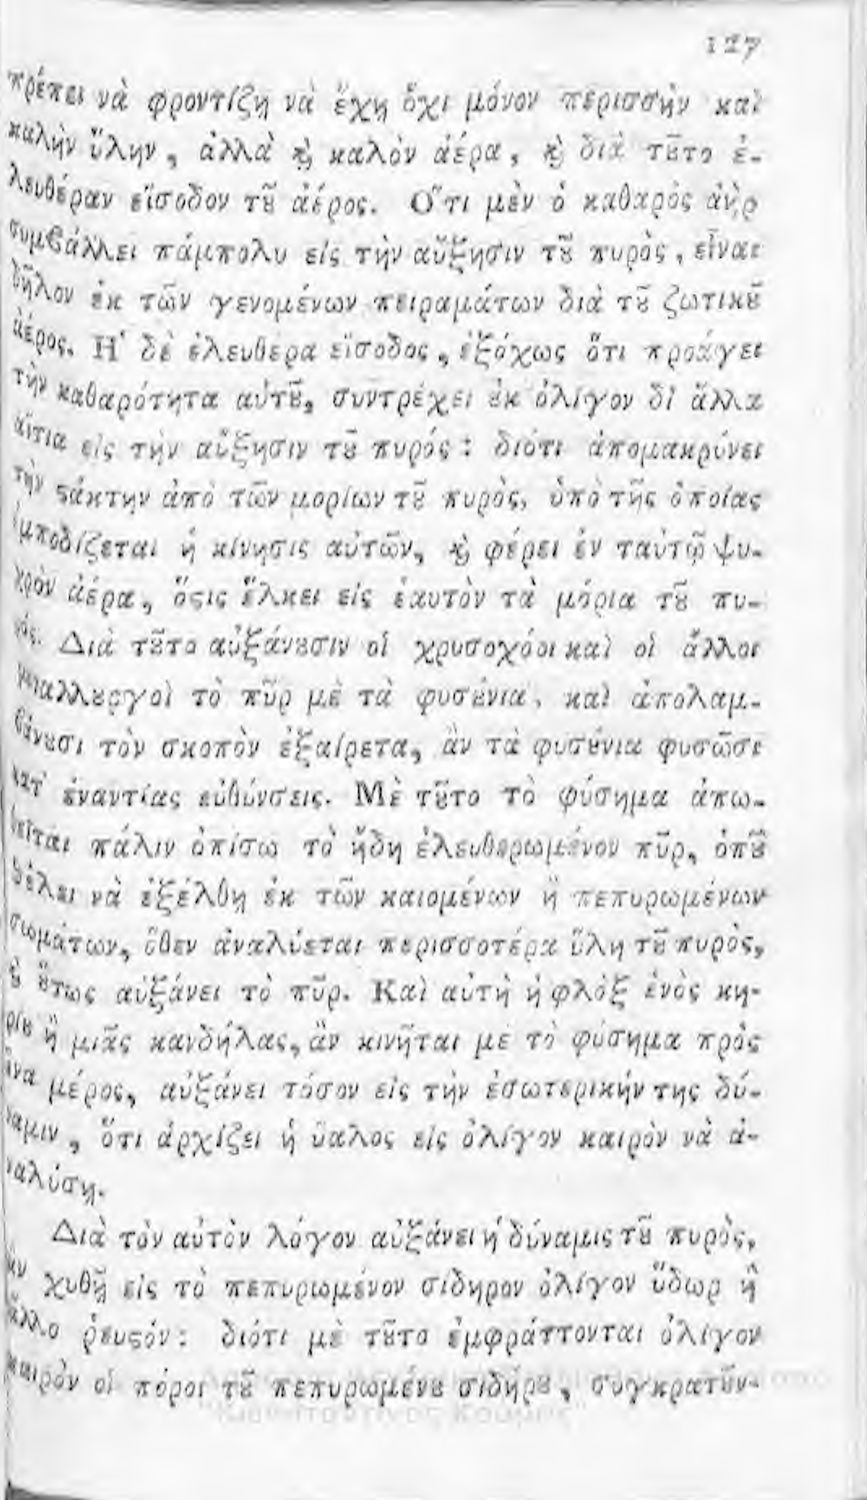 127
πρέπει νὰ φροντίζῃ νὰ ἔχῃ ὄχι μόνον περισσὴν καὶ
καλὴν ὕλην, ἀλλὰ ϗ̀ καλὸν ἀέρα, ϗ̀ διὰ τȣ͂το ἐ-
λευθέραν εἴσοδον τȣ͂ ἀέρος. Ὅτι μὲν ὁ καθαρὸς ἀὴρ
συμβάλλει πάμπολυ εἰς τὴν αὔξησιν τȣ͂ πυρὸς, εἶναι
δῆλον ἐκ τῶν γενομένων πειραμάτων διὰ τȣ͂ ζωτικȣ͂
ἀέρος. Ἡ δὲ ἐλευθερα εἴσοδος, ἐξόχως ὅτι προάγει
τὴν καθαρότητα αὐτȣ͂, συντρέχει ȣ̓κ ὀλίγον δἰ ἄλλα
αἴτια εἰς τὴν αὔξησιν τȣ͂ πυρός: διότι ἀπομακρύνει
τὴν ϛάκτην ἀπὸ τῶν μορίων τȣ͂ πυρὸς, ὑπὸ τῆς ὁποίας
ἐμποδίζεται ἡ κίνησις αὐτῶν, ϗ̀ φέρει ἐν ταὐτῷ ψυ-
χρὸν ἀέρα, ὅϛις ἕλκει εἰς ἑαυτὸν τὰ μόρια τȣ͂ πυ-
ρός. Διὰ τȣ͂το αὐξάνȣσιν οἱ χρυσοχόοι καὶ οἱ ἄλλοι
μεταλλȣργοὶ τὸ πῦρ μὲ τὰ φυσȣ́νια, καὶ ἀπολαμ-
βάνȣσι τὸν σκοπὸν ἐξαίρετα, ἂν τὰ φυσȣ́νια φυσῶσι
κατ' ἐναντίας εὐθύνσεις. Μὲ τȣ͂το τὸ φύσημα ἀπω-
θεῖται πάλιν ὀπίσω τὸ ἤδη ἐλευθερωμένον πῦρ, ὁπȣ͂
θέλει νὰ ἐξέλθῃ ἐκ τῶν καιομένων ἢ πεπυρωμένων
σωμάτων, ὅθεν ἀναλύεται περισσοτέρα ὕλη τȣ͂ πυρὸς,
ϗ̀ ȣ̔́τως αὐξάνει τὸ πῦρ. Καὶ αὐτὴ ἡ φλὸξ ἑνὸς κη-
ρίȣ ἢ μιᾶς κανδήλας, ἂν κινῆται με τὸ φύσημα πρὸς
ἕνα μέρος, αὐξάνει τόσον εἰς τὴν ἐσωτερικήν της δύ-
ναμιν, ὅτι ἀρχίζει ἡ ὕαλος εἰς ὀλίγον καιρὸν νὰ ἀ-
ναλύσῃ.
Διὰ τὸν αὐτὸν λόγον αὐξάνει ἡ δύναμις τȣ͂ πυρὸς,
ἂν χυθῇ εἰς τὸ πεπυρωμένον σίδηρον ὀλίγον ὕδωρ ἢ
ἄλλο ῥευϛόν: διότι μὲ τȣ͂το ἐμφράττονται ὀλίγον
καιρὸν οἱ πόροι τȣ͂ πεπυρωμένȣ σιδήρȣ, συγκρατȣ͂ν-